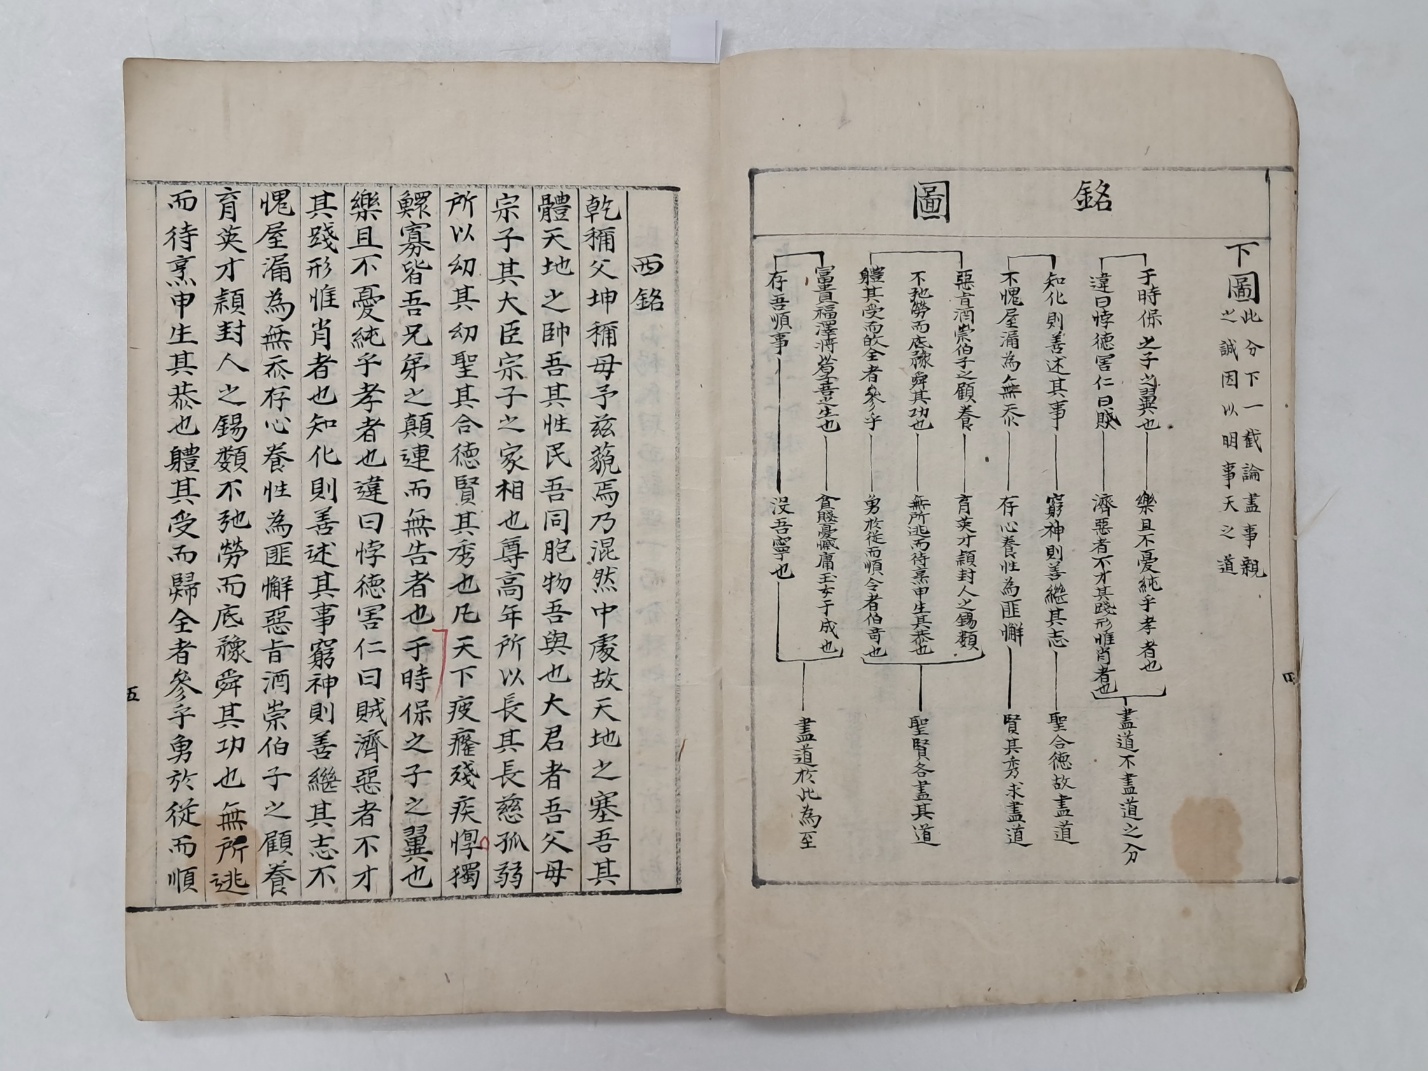 銘圖
下圖
此分下一截論盡事親
之誠因以明事天之道
于時保之子之翼也
樂且不憂純乎孝者也
違曰悖德害仁曰賊
濟惡者不才其踐形惟肖者也
盡道不盡道之分
知化則善述其事
窮神則善繼其志
聖合德故盡道
不愧屋漏為無忝
存心養性為匪懈
賢其秀求盡道
惡旨酒崇伯子之顧養
育英才穎封人之錫類
不弛勞而底豫舜其功也
無所逃而待烹申生其恭也
軆其受而歸全者參乎
勇於從而順令者伯奇也
聖賢各盡其道
富貴福澤將厚吾之生也
貧賤憂慽庸玉女于成也
存吾順事
沒吾寧也
盡道於此為至
四
西銘
乾稱父坤稱母予玆藐焉乃混然中處故天地之塞吾其
體天地之帥吾其性民吾同胞物吾與也大君者吾父母
宗子其大臣宗子之家相也尊高年所以長其長慈孤弱
所以幼其幼聖其合德賢其秀也凡天下疲癃殘疾惸獨
鰥寡皆吾兄弟之顛連而無告者也于時保之子之翼也
樂且不憂純乎孝者也違曰悖德害仁曰賊濟惡者不才
其踐形惟肖者也知化則善述其事窮神則善繼其志不
愧屋漏為無忝存心養性為匪懈惡旨酒崇伯子之顧養
育英才穎封人之錫類不弛勞而底豫舜其功也無所逃
而待烹申生其恭也軆其受而歸全者參乎勇於從而順
五